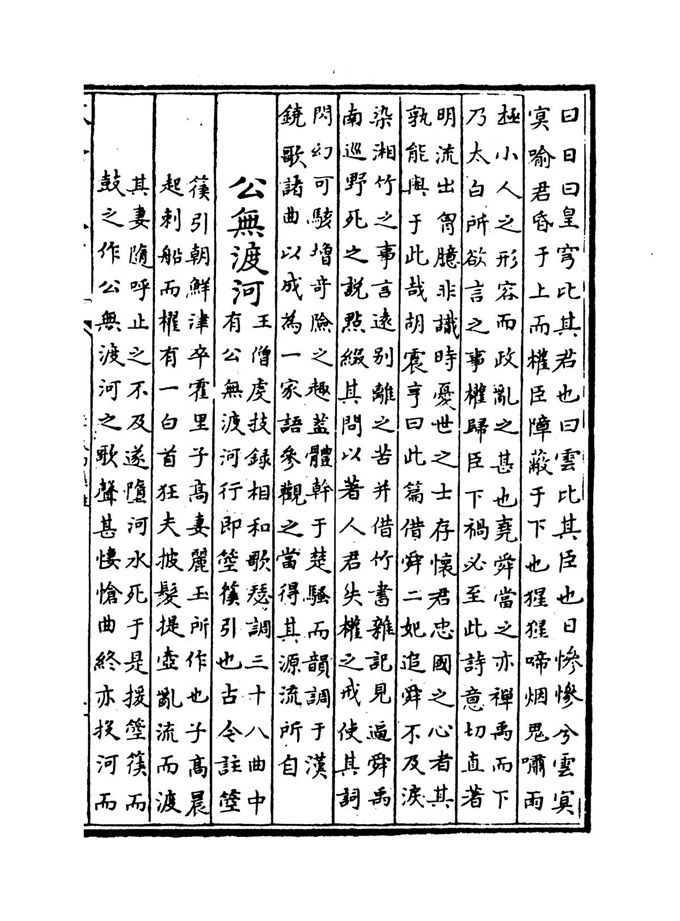 曰日曰皇穹比其君也曰雲比其臣也日慘慘兮雲冥
冥喻君昏于上而權臣障蔽于下也猩猩啼烟鬼嘯雨
極小人之形容而政亂之甚也堯舜當之亦禪禹而下
乃太白所欲言之事權歸臣下禍必至此詩意切直著
明流出胷臆非識時憂世之士存懷君忠國之心者其
孰能與于此哉胡震亨曰此篇借舜二妃追舜不及淚
染湘竹之事言遠别離之苦并借竹書雜記見逼舜禹
南巡野死之說㸃綴其問以著人君失權之戒使其詞
閃幻可駭增竒險之趣葢體幹于楚騷而韻調于漢
鐃歌諸曲以成為一家語參觀之當得其源流所自
公無渡河
王僧虔技録相和歌瑟調三十八曲中
有公無渡河行即箜篌引也古今註箜
篌引朝鮮津卒霍里子髙妻麗玉所作也子髙晨
起刺船而櫂有一白首狂夫披髮提壺亂流而渡
其妻隨呼止之不及遂墮河水死于是援箜篌而
鼓之作公無渡河之歌聲甚悽愴曲終亦投河而